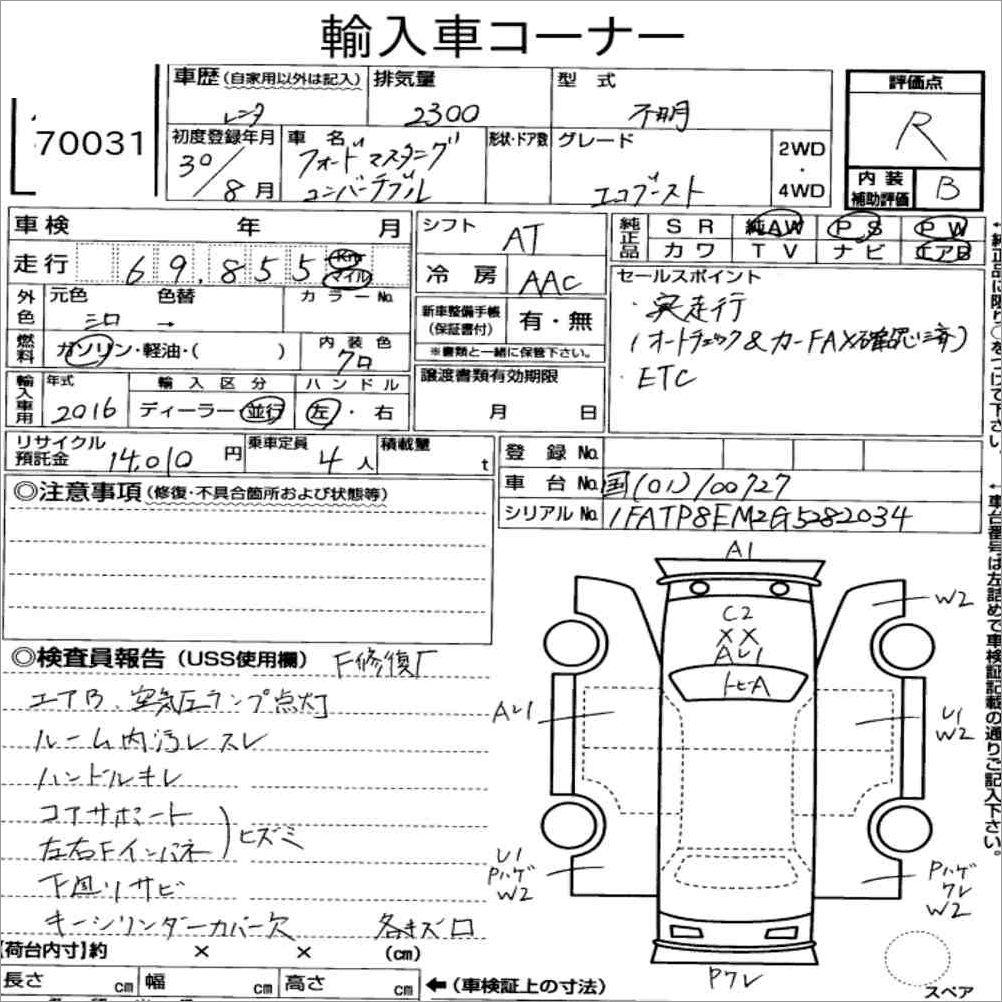 輸入車コーナー
70031
車歴(自家用以外は記入)
レンタ
排気量
2300
型 式
不明
評価点
R
内装補助評価
B
初度登録年月
30/8月
車 名
フォードマスタング
コンバーチブル
形状・ドア数
グレード
エコブースト
2WD
・
4WD
車検 年 月
走行 69,855 Km マイル
シフト
AT
冷房
AAC
純正品
SR 純AW PS PW
カワ TV ナビ エアB
セールスポイント
・実走行
(オートチェック&カーFAX確認済)
・ETC
外色
元色
シロ
色替
→
カラーNo.
燃料
ガソリン・軽油・( )
内装色
クロ
新車整備手帳
(保証書付)
有・無
※書類と一緒に保管下さい。
輸入車用
年式
2016
輸入区分
ディーラー・並行
ハンドル
左・右
譲渡書類有効期限
月 日
リサイクル預託金
14,010円
乗車定員
4人
積載量
t
登録 No.
車台 No. 国(01)100727
シリアル No. 1FATP8EM2G5282034
◎注意事項(修復・不具合箇所および状態等)
◎検査員報告(USS使用欄) F修復厂
エアB、空気圧ランプ点灯
ルーム内汚レスレ
ハンドルキレ
コアサポート
左右Fインパネ
ヒズミ
下回リサビ
キーシリンダーカバー欠
各キズ凹
A1
C2
XX
AU1
トビA
W2
AU1
U1
W2
U1
Pハゲ
W2
Pハゲ
ワレ
W2
Pワレ
スペア
【荷台内寸】約 × × (cm)
長さ cm 幅 cm 高さ cm
←(車検証上の寸法)
↑純正品に限り○をつけて下さい。
↑車台番号は左詰めで車検証記載の通りご記入下さい。